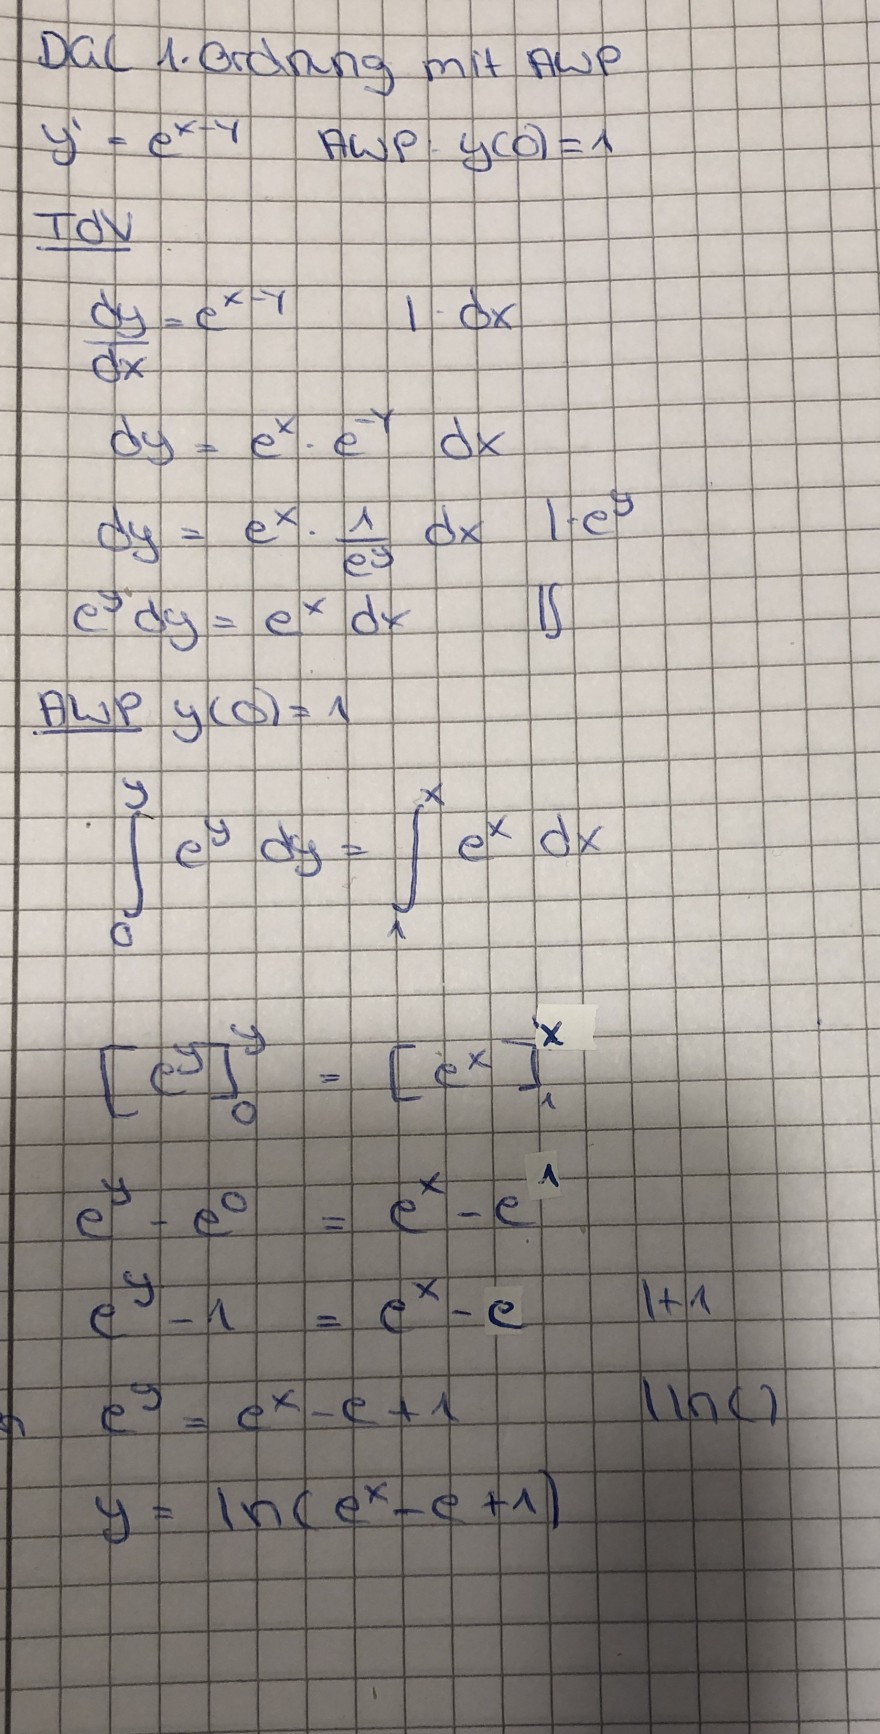 DGL 1. Ordnung mit AWP
y' = e^(x-y) AWP: y(0) = 1
TdV
dy/dx = e^(x-y) | · dx
dy = e^x · e^(-y) dx
dy = e^x · 1/e^y dx | · e^y
e^y dy = e^x dx | ∫
AWP y(0) = 1
∫_0^y e^y dy = ∫_1^x e^x dx
[e^y]_0^y = [e^x]_1^x
e^y - e^0 = e^x - e^1
e^y - 1 = e^x - e | + 1
e^y = e^x - e + 1 | ln()
y = ln(e^x - e + 1)